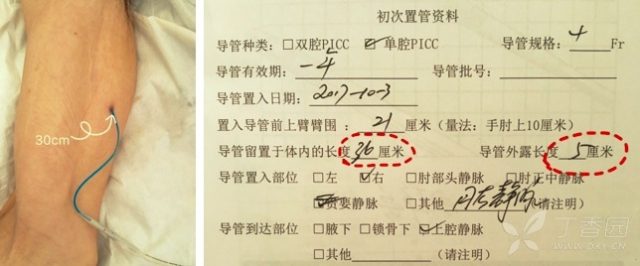 30cm
初次置管资料
导管种类：□双腔PICC ☑单腔PICC 导管规格：4 Fr
导管有效期： 导管批号：
导管置入日期：2017-10-3
置入导管前上臂臂围：21厘米（量法：手肘上10厘米）
导管留置于体内的长度36厘米 导管外露长度5厘米
导管置入部位 □左 ☑右 □肘部头静脉 □肘正中静脉
☑贵要静脉 □其他 （请注明）
导管到达部位 □腋下 □锁骨下 ☑上腔静脉
□其他 （请注明）
丁香园
WWW.DXY.CN